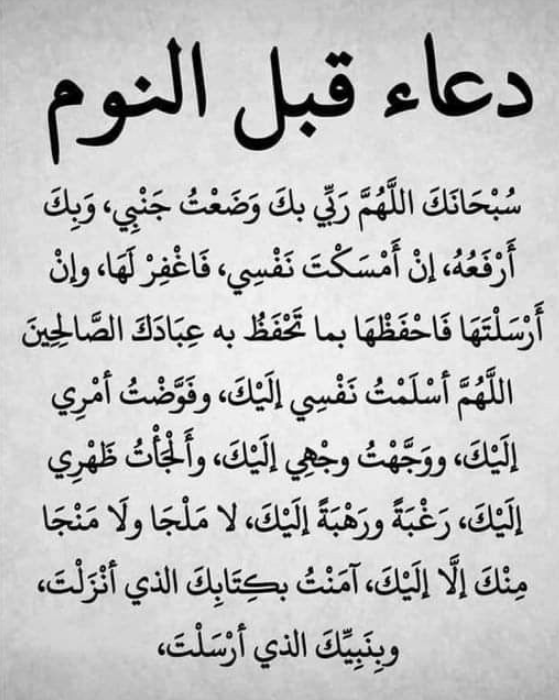 دعاء قبل النوم
سُبْحَانَكَ اللَّهُمَّ رَبِّي بكَ وَضَعْتُ جَنْبِي، وَبِكَ
أَرْفَعُهُ، إنْ أَمْسَكْتَ نَفْسِي، فَاغْفِرْ لَهَا، وإنْ
أَرْسَلْتَهَا فَاحْفَظْهَا بما تَحْفَظُ به عِبَادَكَ الصَّالِحِينَ
اللَّهُمَّ أسْلَمْتُ نَفْسِي إلَيْكَ، وفَوَّضْتُ أمْرِي
إلَيْكَ، ووَجَّهْتُ وجْهِي إلَيْكَ، وأَلْجَأْتُ ظَهْرِي
إلَيْكَ، رَغْبَةً ورَهْبَةً إلَيْكَ، لا مَلْجَا ولَا مَنْجَا
مِنْكَ إلَّا إلَيْكَ، آمَنْتُ بكِتَابِكَ الذي أنْزَلْتَ،
وبِنَبِيِّكَ الذي أرْسَلْتَ،